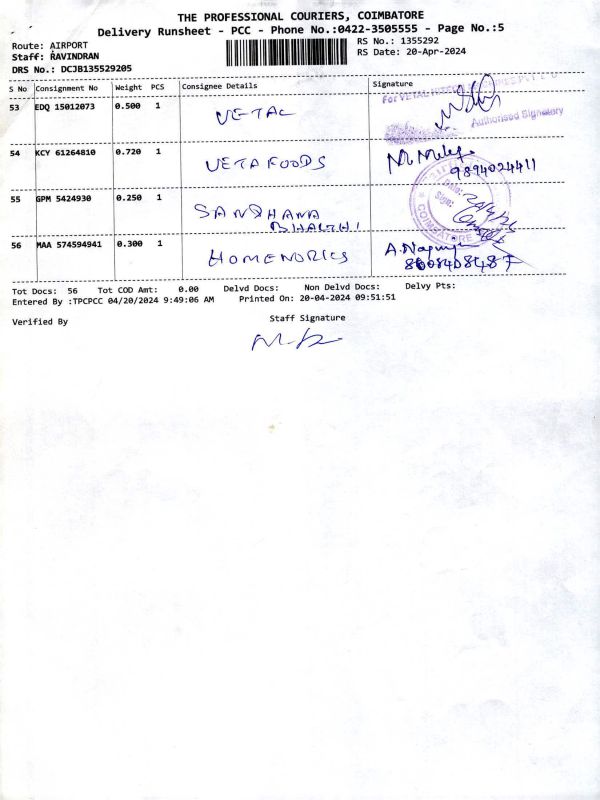 THE PROFESSIONAL COURIERS, COIMBATORE
Delivery Runsheet - PCC - Phone No.:0422-3505555 - Page No.:5
Route: AIRPORT
RS No.: 1355292
Staff: RAVINDRAN
RS Date: 20-Apr-2024
DRS No.: DCJB135529205
S No Consignment No Weight PCS Consignee Details Signature
53 EDQ 15012073 0.500 1 VETAL
For VETAL
Authorised Signatory
54 KCY 61264810 0.720 1 VETA FOODS
9894024411
55 GPM 5424930 0.250 1 SANDHANA
BHARTHI
Date:
Sign:
COIMBATORE
56 MAA 574594941 0.300 1 HOMENDRICS
Tot Docs: 56 Tot COD Amt: 0.00 Delvd Docs: Non Delvd Docs: Delvy Pts:
Entered By :TPCPCC 04/20/2024 9:49:06 AM Printed On: 20-04-2024 09:51:51
Verified By
Staff Signature